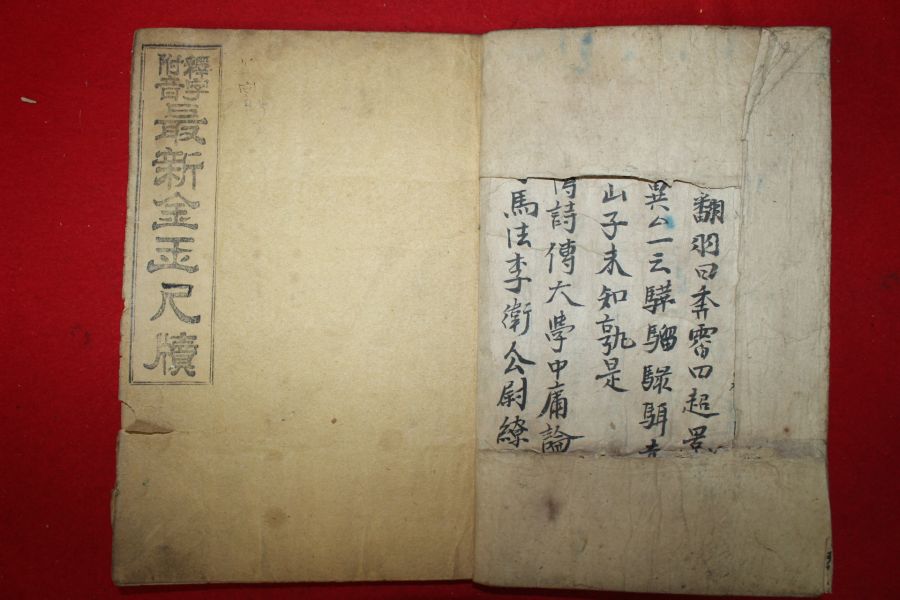 翻羽曰奔霄曰超
一云驊騮騄駬
山子未知孰是
詩傳大學中庸論
馬法李衛公尉繚
釋字
附音
最新金玉尺牘